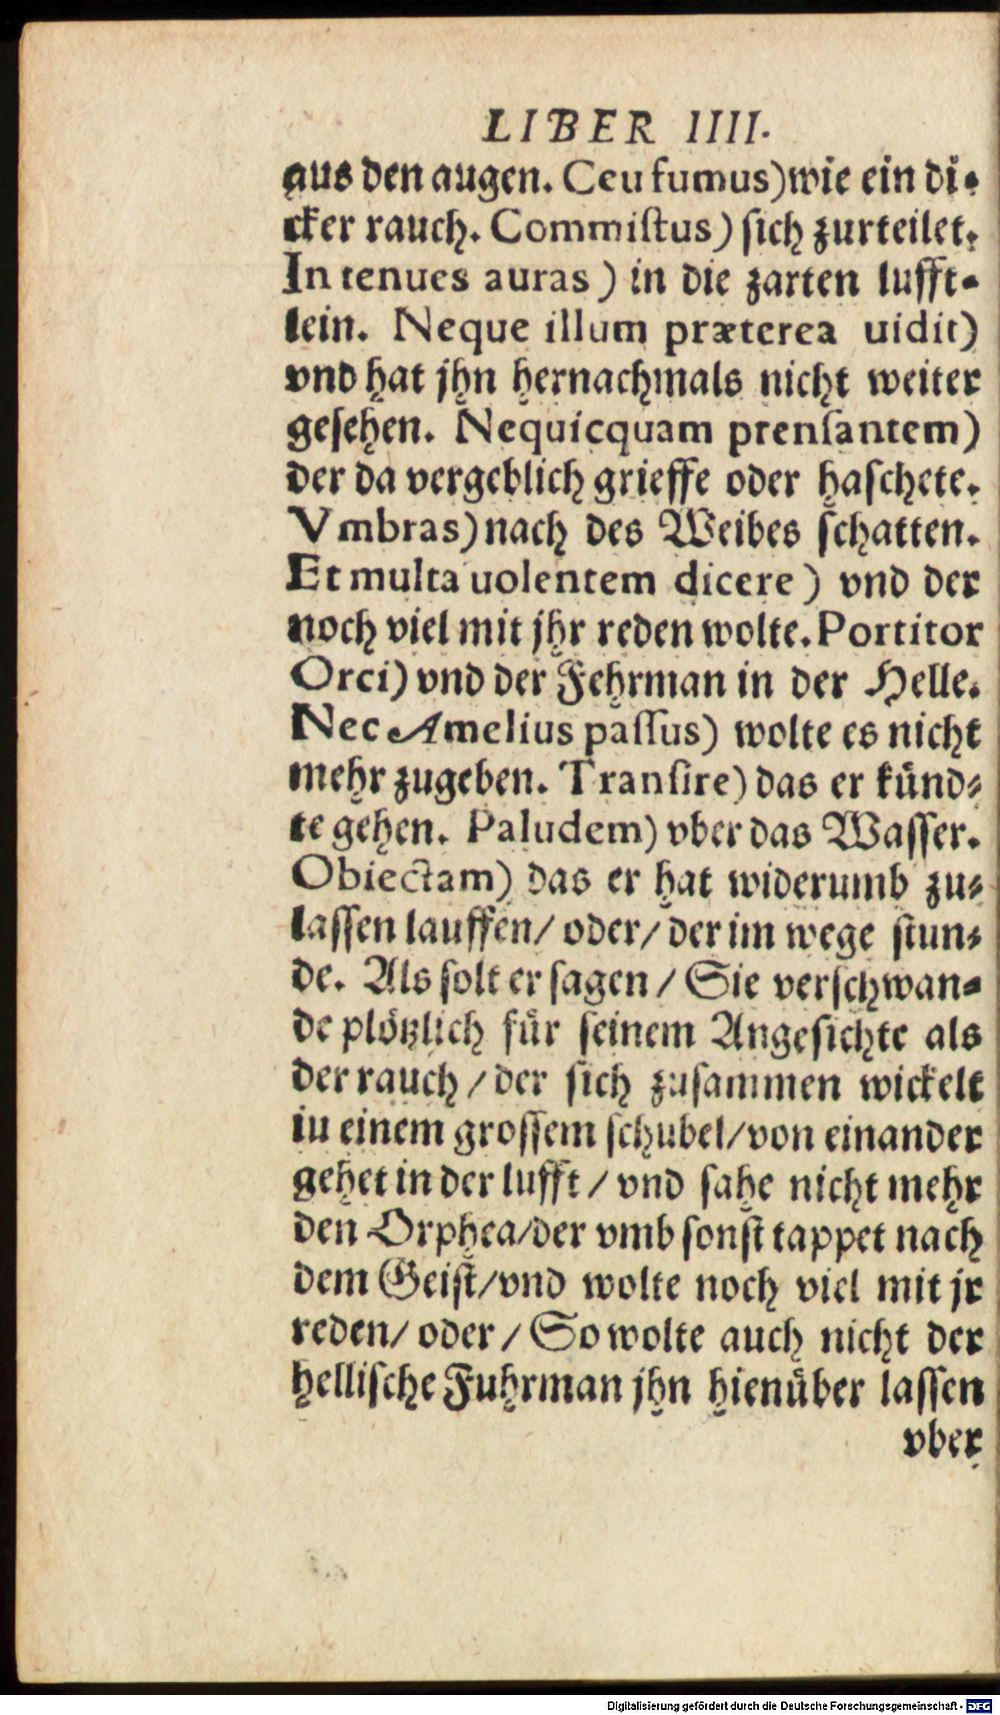 LIBER IIII.
aus den augen. Ceu fumus) wie ein di⸗
cker rauch. Commiſtus) ſich zurteilet.
In tenues auras) in die zarten lufft⸗
lein. Neque illum præterea uidit)
vnd hat jhn hernachmals nicht weiter
geſehen. Nequicquam prenſantem)
der da vergeblich grieffe oder haſchete.
Vmbras) nach des Weibes ſchatten.
Et multa uolentem dicere) vnd der
noch viel mit jhr reden wolte. Portitor
Orci) vnd der Fehrman in der Helle.
Nec Amelius paſſus) wolte es nicht
mehr zugeben. Tranſire) das er künd⸗
te gehen. Paludem) vber das Waſſer.
Obiectam) das er hat widerumb zu⸗
laſſen lauffen/ oder/ der im wege ſtun⸗
de. Als ſolt er ſagen/ Sie verſchwan⸗
de plötzlich für ſeinem Angeſichte als
der rauch/ der ſich zuſammen wickelt
iu einem groſſem ſchubel/ von einander
gehet in der lufft/ vnd ſahe nicht mehr
den Orphea/ der vmb ſonſt tappet nach
dem Geiſt/ vnd wolte noch viel mit jr
reden/ oder/ So wolte auch nicht der
helliſche Fuhrman jhn hienüber laſſen
vber
Digitalisierung gefördert durch die Deutsche Forschungsgemeinschaft - DFG